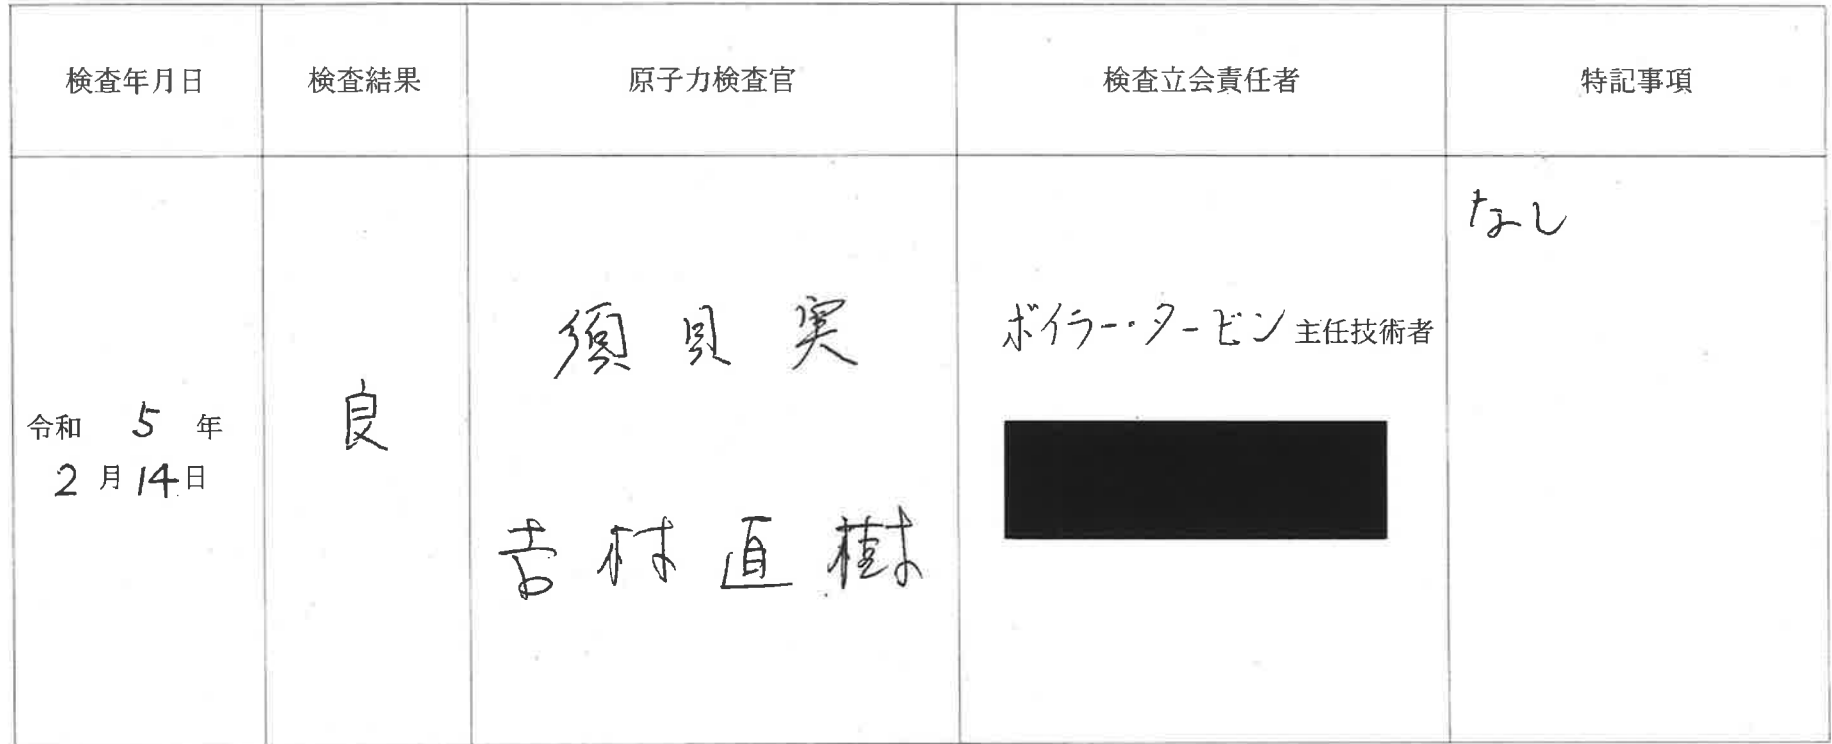 検査年月日
検査結果
原子力検査官
検査立会責任者
特記事項
令和 5 年
2 月 14 日
良
須貝実
吉村直樹
ボイラー・タービン 主任技術者
なし